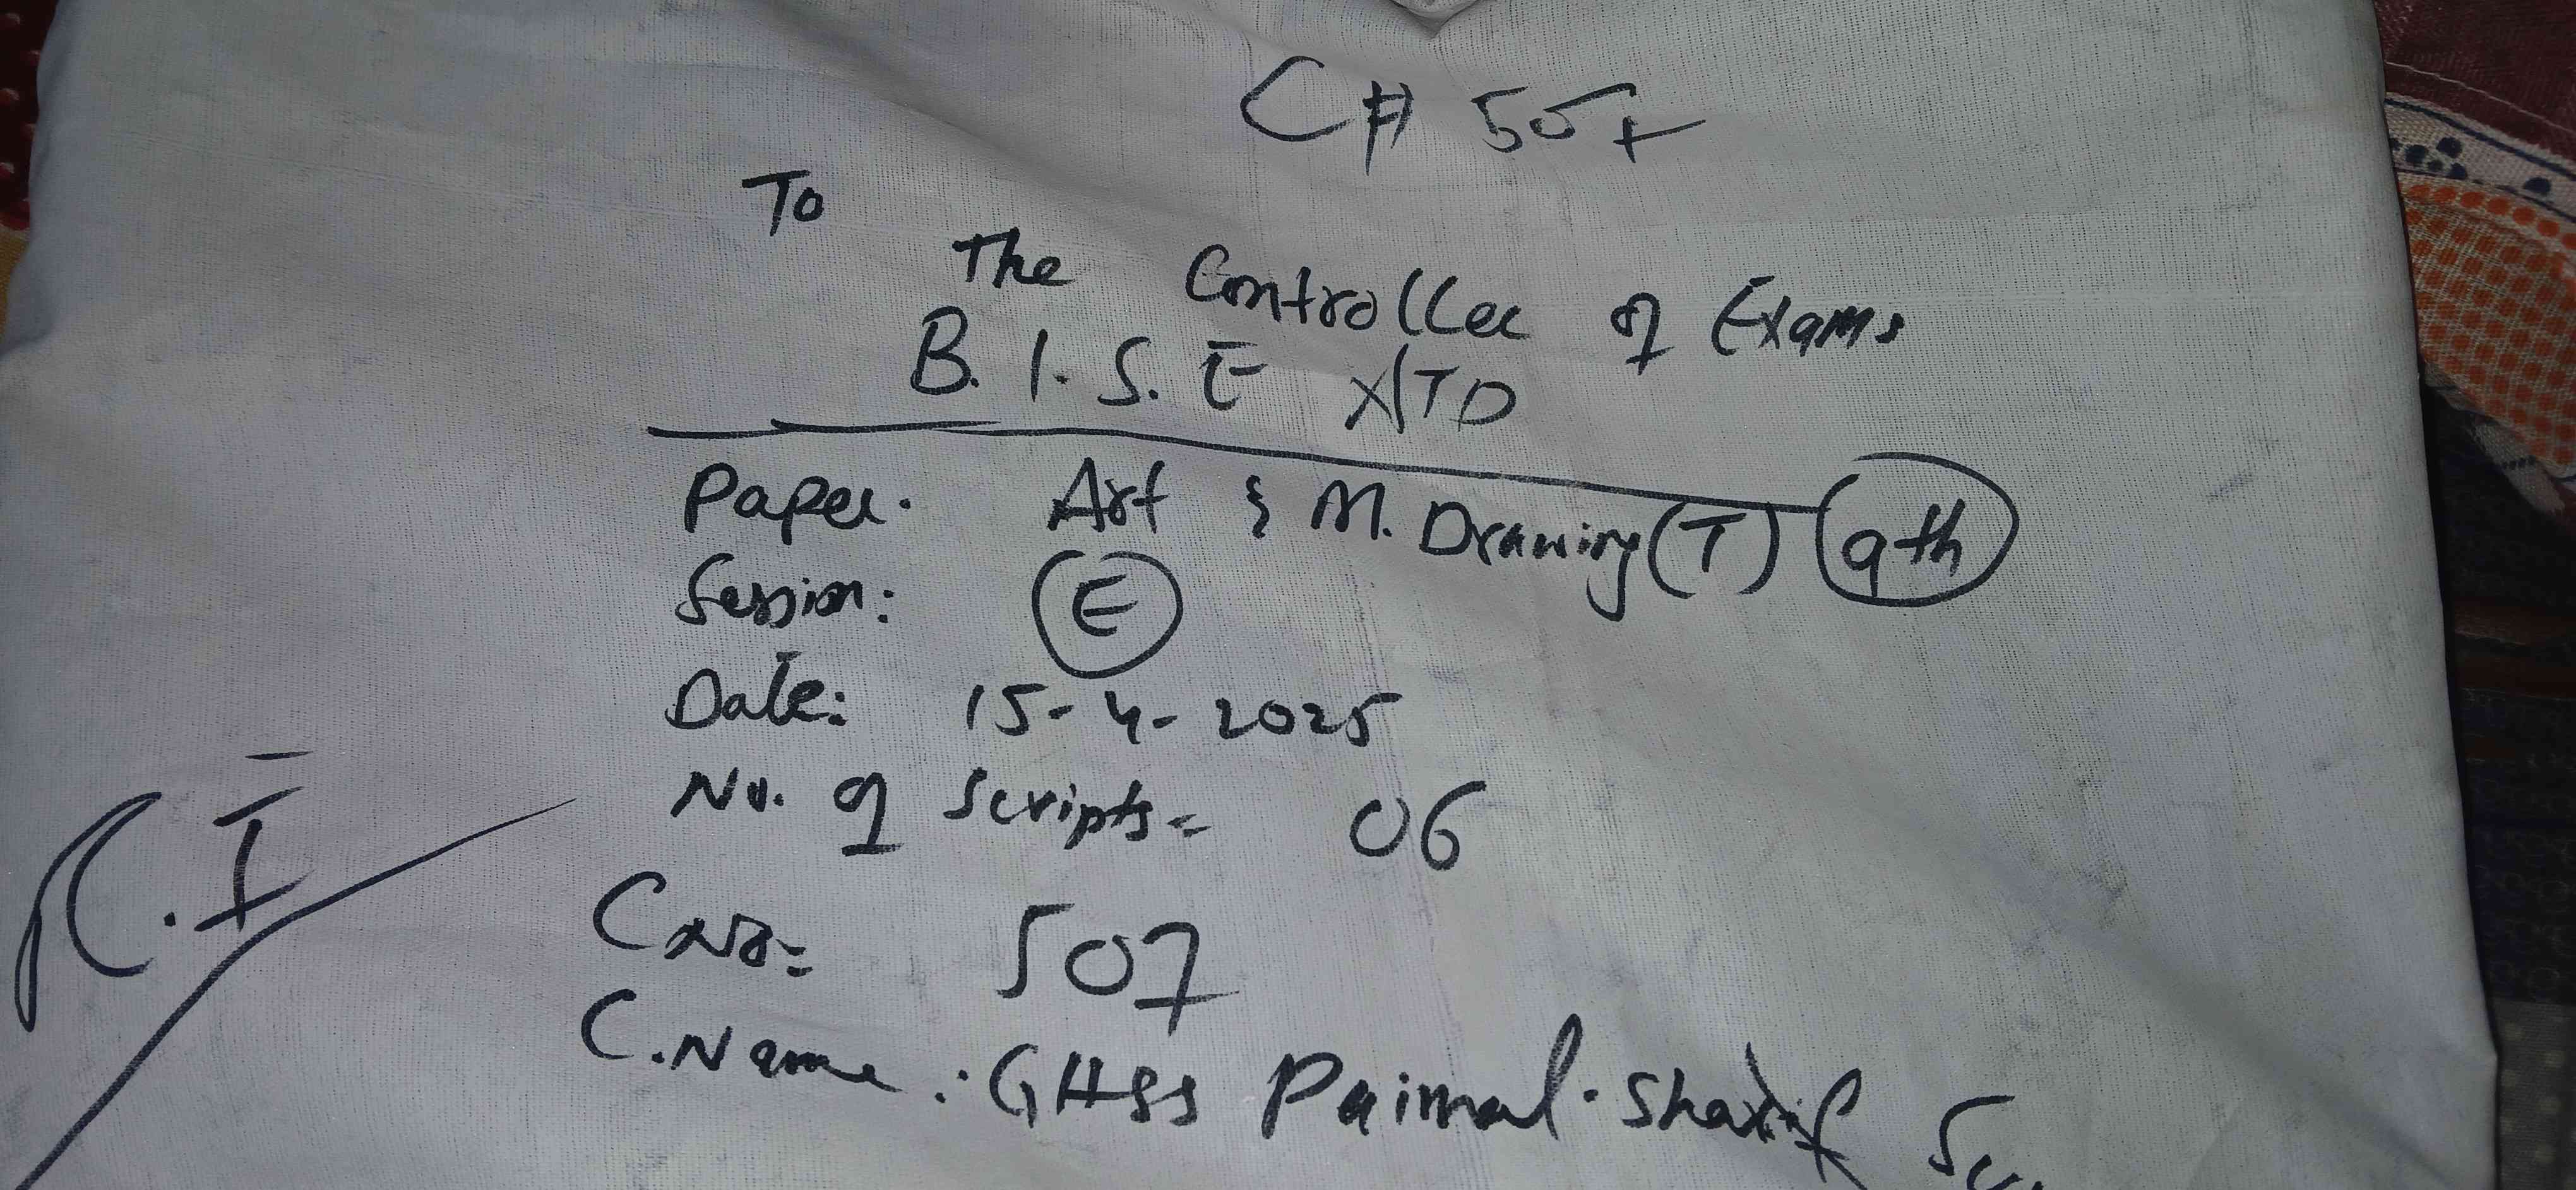 C# 507
To
The Controller of Exams
B. I. S. E ATD
Paper. Art & M. Drawing (T) 9th
Session: E
Date: 15-4-2025
No. of Scripts= 06
C No= 507
C. Name: GHSS Paimal Sharif
R.I